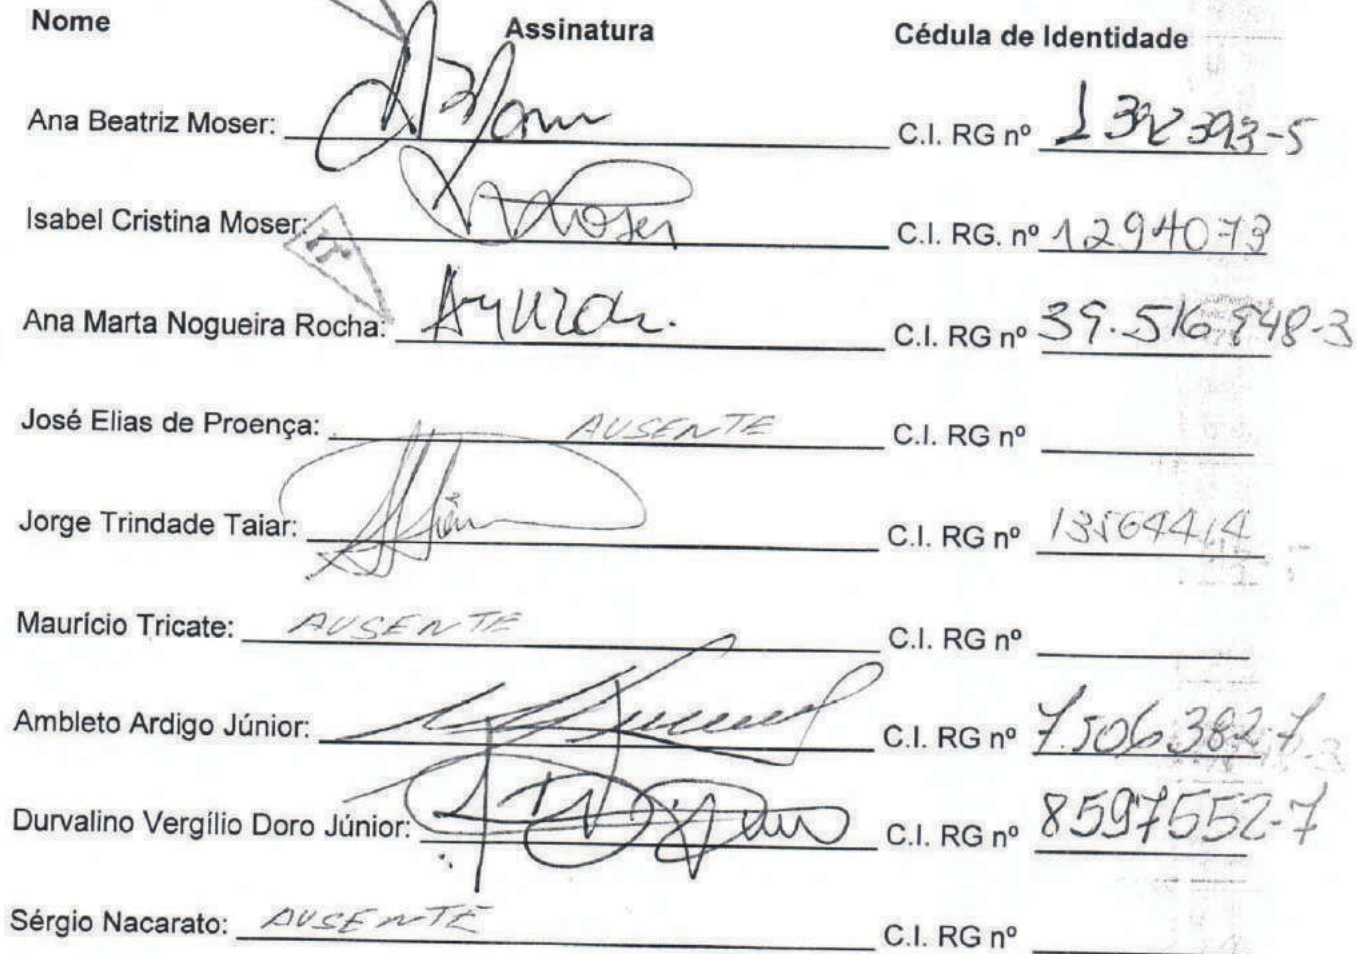 Nome Assinatura Cédula de Identidade
Ana Beatriz Moser: C.I. RG nº 1392393-5
Isabel Cristina Moser: Moser C.I. RG. nº 1294073
Ana Marta Nogueira Rocha: C.I. RG nº 39.516.948-3
José Elias de Proença: AUSENTE C.I. RG nº
Jorge Trindade Taiar: C.I. RG nº 13564414
Maurício Tricate: AUSENTE C.I. RG nº
Ambleto Ardigo Júnior: C.I. RG nº 7.506.382-7
Durvalino Vergílio Doro Júnior: C.I. RG nº 8597552-7
Sérgio Nacarato: AUSENTE C.I. RG nº